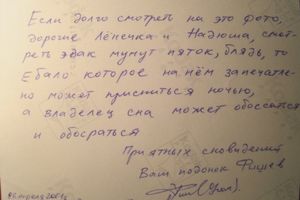 Если долго смотреть на это фото,
дорогие Лёнечка и Надюша, смот-
реть эдак минут пяток, блядь, то
ебало которое на нём запечатле-
но может присниться ночью,
а владелец сна может обоссаться
и обосраться
Приятных сновидений
Ваш подонок